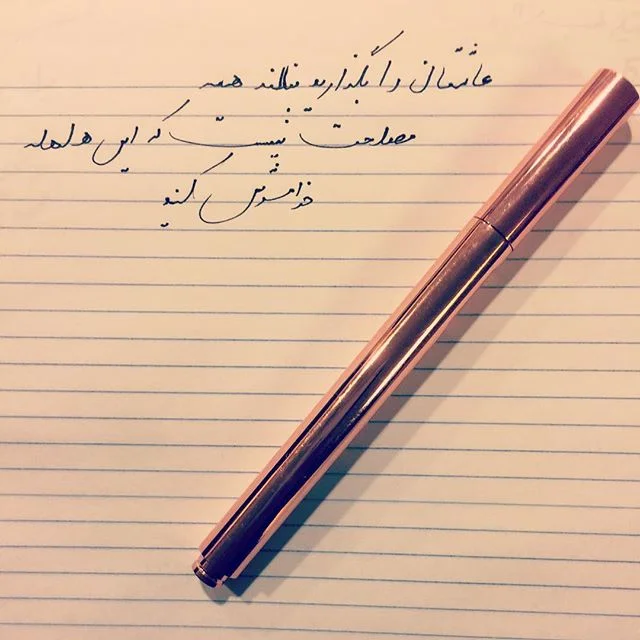 عاشقان را بگذارید بنالند همه
مصلحت نیست که این هلهله
خاموش کنید